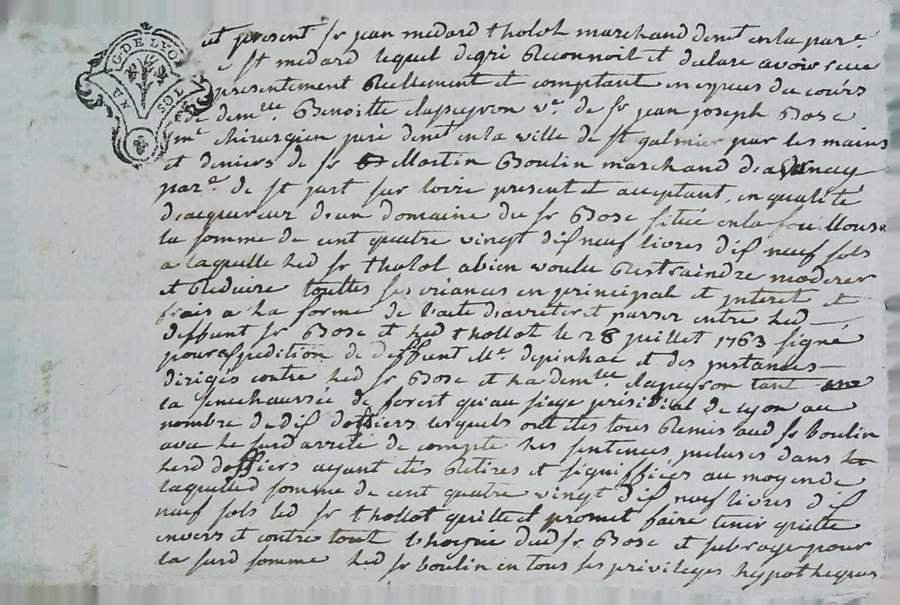 G. DE LYON
DEUX SOLS
est present sr jean medard tholot marchand demt en la parr.e
de St medard lequel de gré Reconnoit et declare avoir receu
presentement Reellement et comptant en especes du cours
de dem.lle Benoitte clapeyron v.e de sr jean joseph Bosc
m.e chirurgien juré demt en la ville de st galmier par les mains
et deniers de sr Martin Boulin marchand
par.e de st just sur loire present et acceptant, en qualité
d'acquereur d'un domaine du sr Bosc situé en la fouillouse
la somme de cent quatre vingt dix neuf livres dix neuf sols
a laquelle led sr tholot a bien voulu Restraindre moderer
et Reduire touttes ses créances en principal et interet et
frais a la forme de l'acte d'arrêté et passer entre led
deffunt sr Bosc et led thollot le 28 juillet 1763 signé
pour expedition de deffunt Me depinhac et des instances
dirigés contre led sr Bosc et la dem.lle clapeyron tant en
la senechaussée de forest qu'au siege présidial de lyon au
nombre de dix dossiers lesquels ont etes tous Remis aud sr boulin
avec le susd arrété de compte les sentences incluses dans
lesd dossiers ayant etes Retires et signiffiées au moyen de
laquelled somme de cent quatre vingt dix neuf livres dix
neuf sols led sr thollot quitte et promet faire tenir quitte
envers et contre tout l'hoyrie dud sr Bosc et subroge pour
la susd somme led sr boulin en tous ses privileges hypotheques